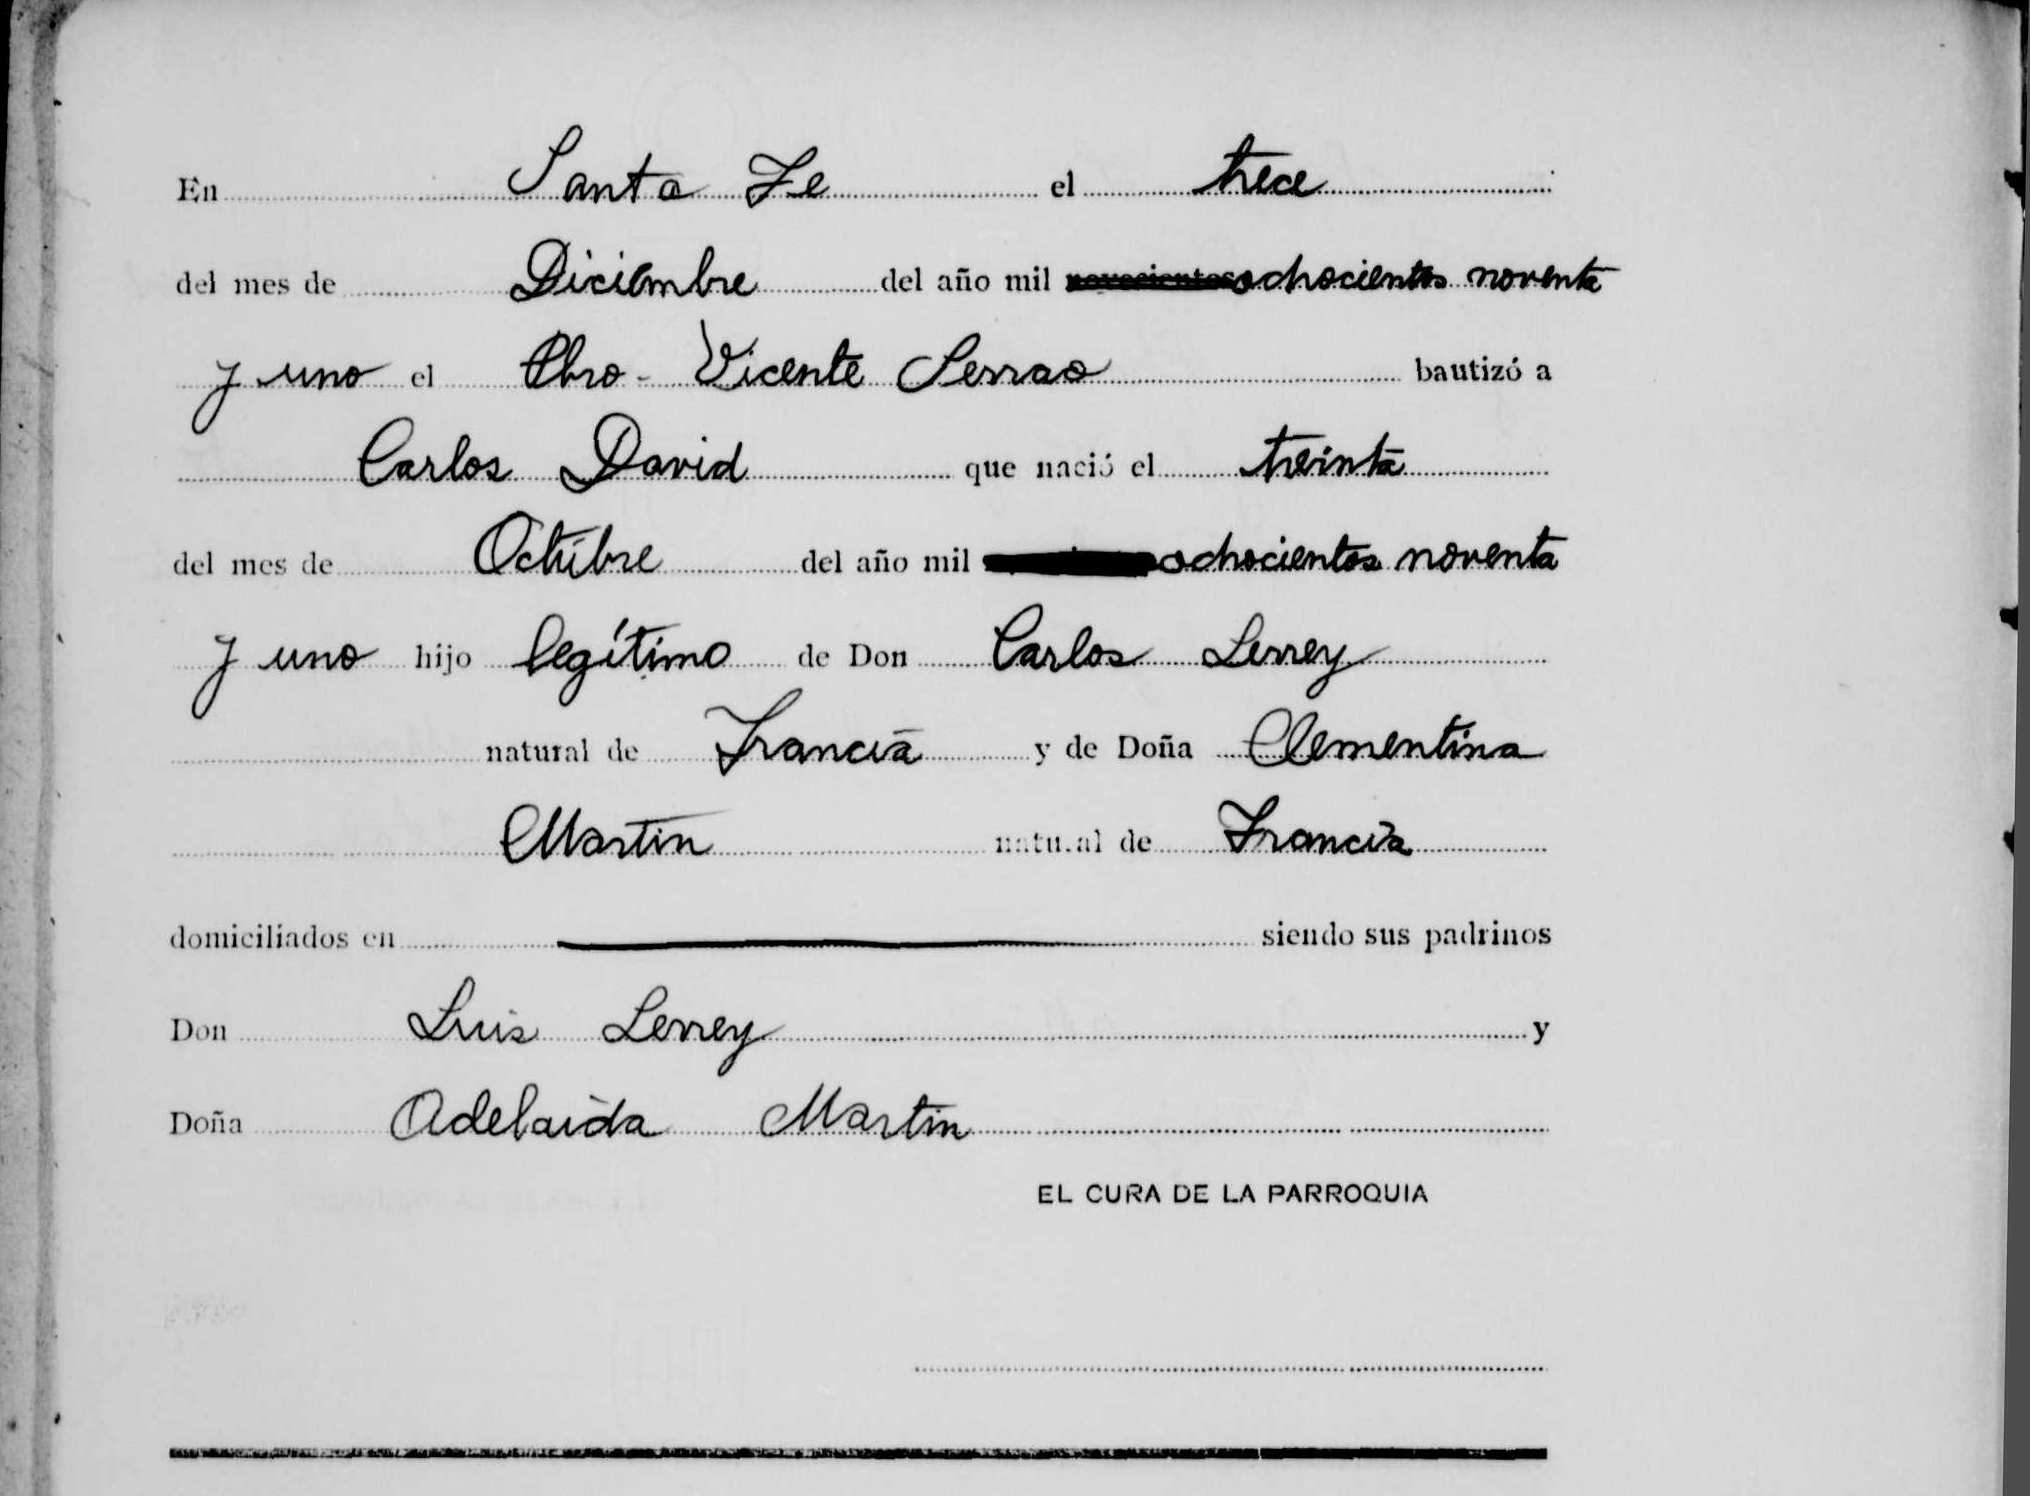 En Santa Fe el trece
del mes de Diciembre del año mil novecientos ochocientos noventa
y uno el Pbro- Vicente Serrao bautizó a
Carlos David que nació el treinta
del mes de Octubre del año mil ochocientos noventa
y uno hijo legítimo de Don Carlos Lerrey
natural de Francia y de Doña Clementina
Martin natural de Francia
domiciliados en siendo sus padrinos
Don Luis Lerrey y
Doña Adelaida Martin
EL CURA DE LA PARROQUIA